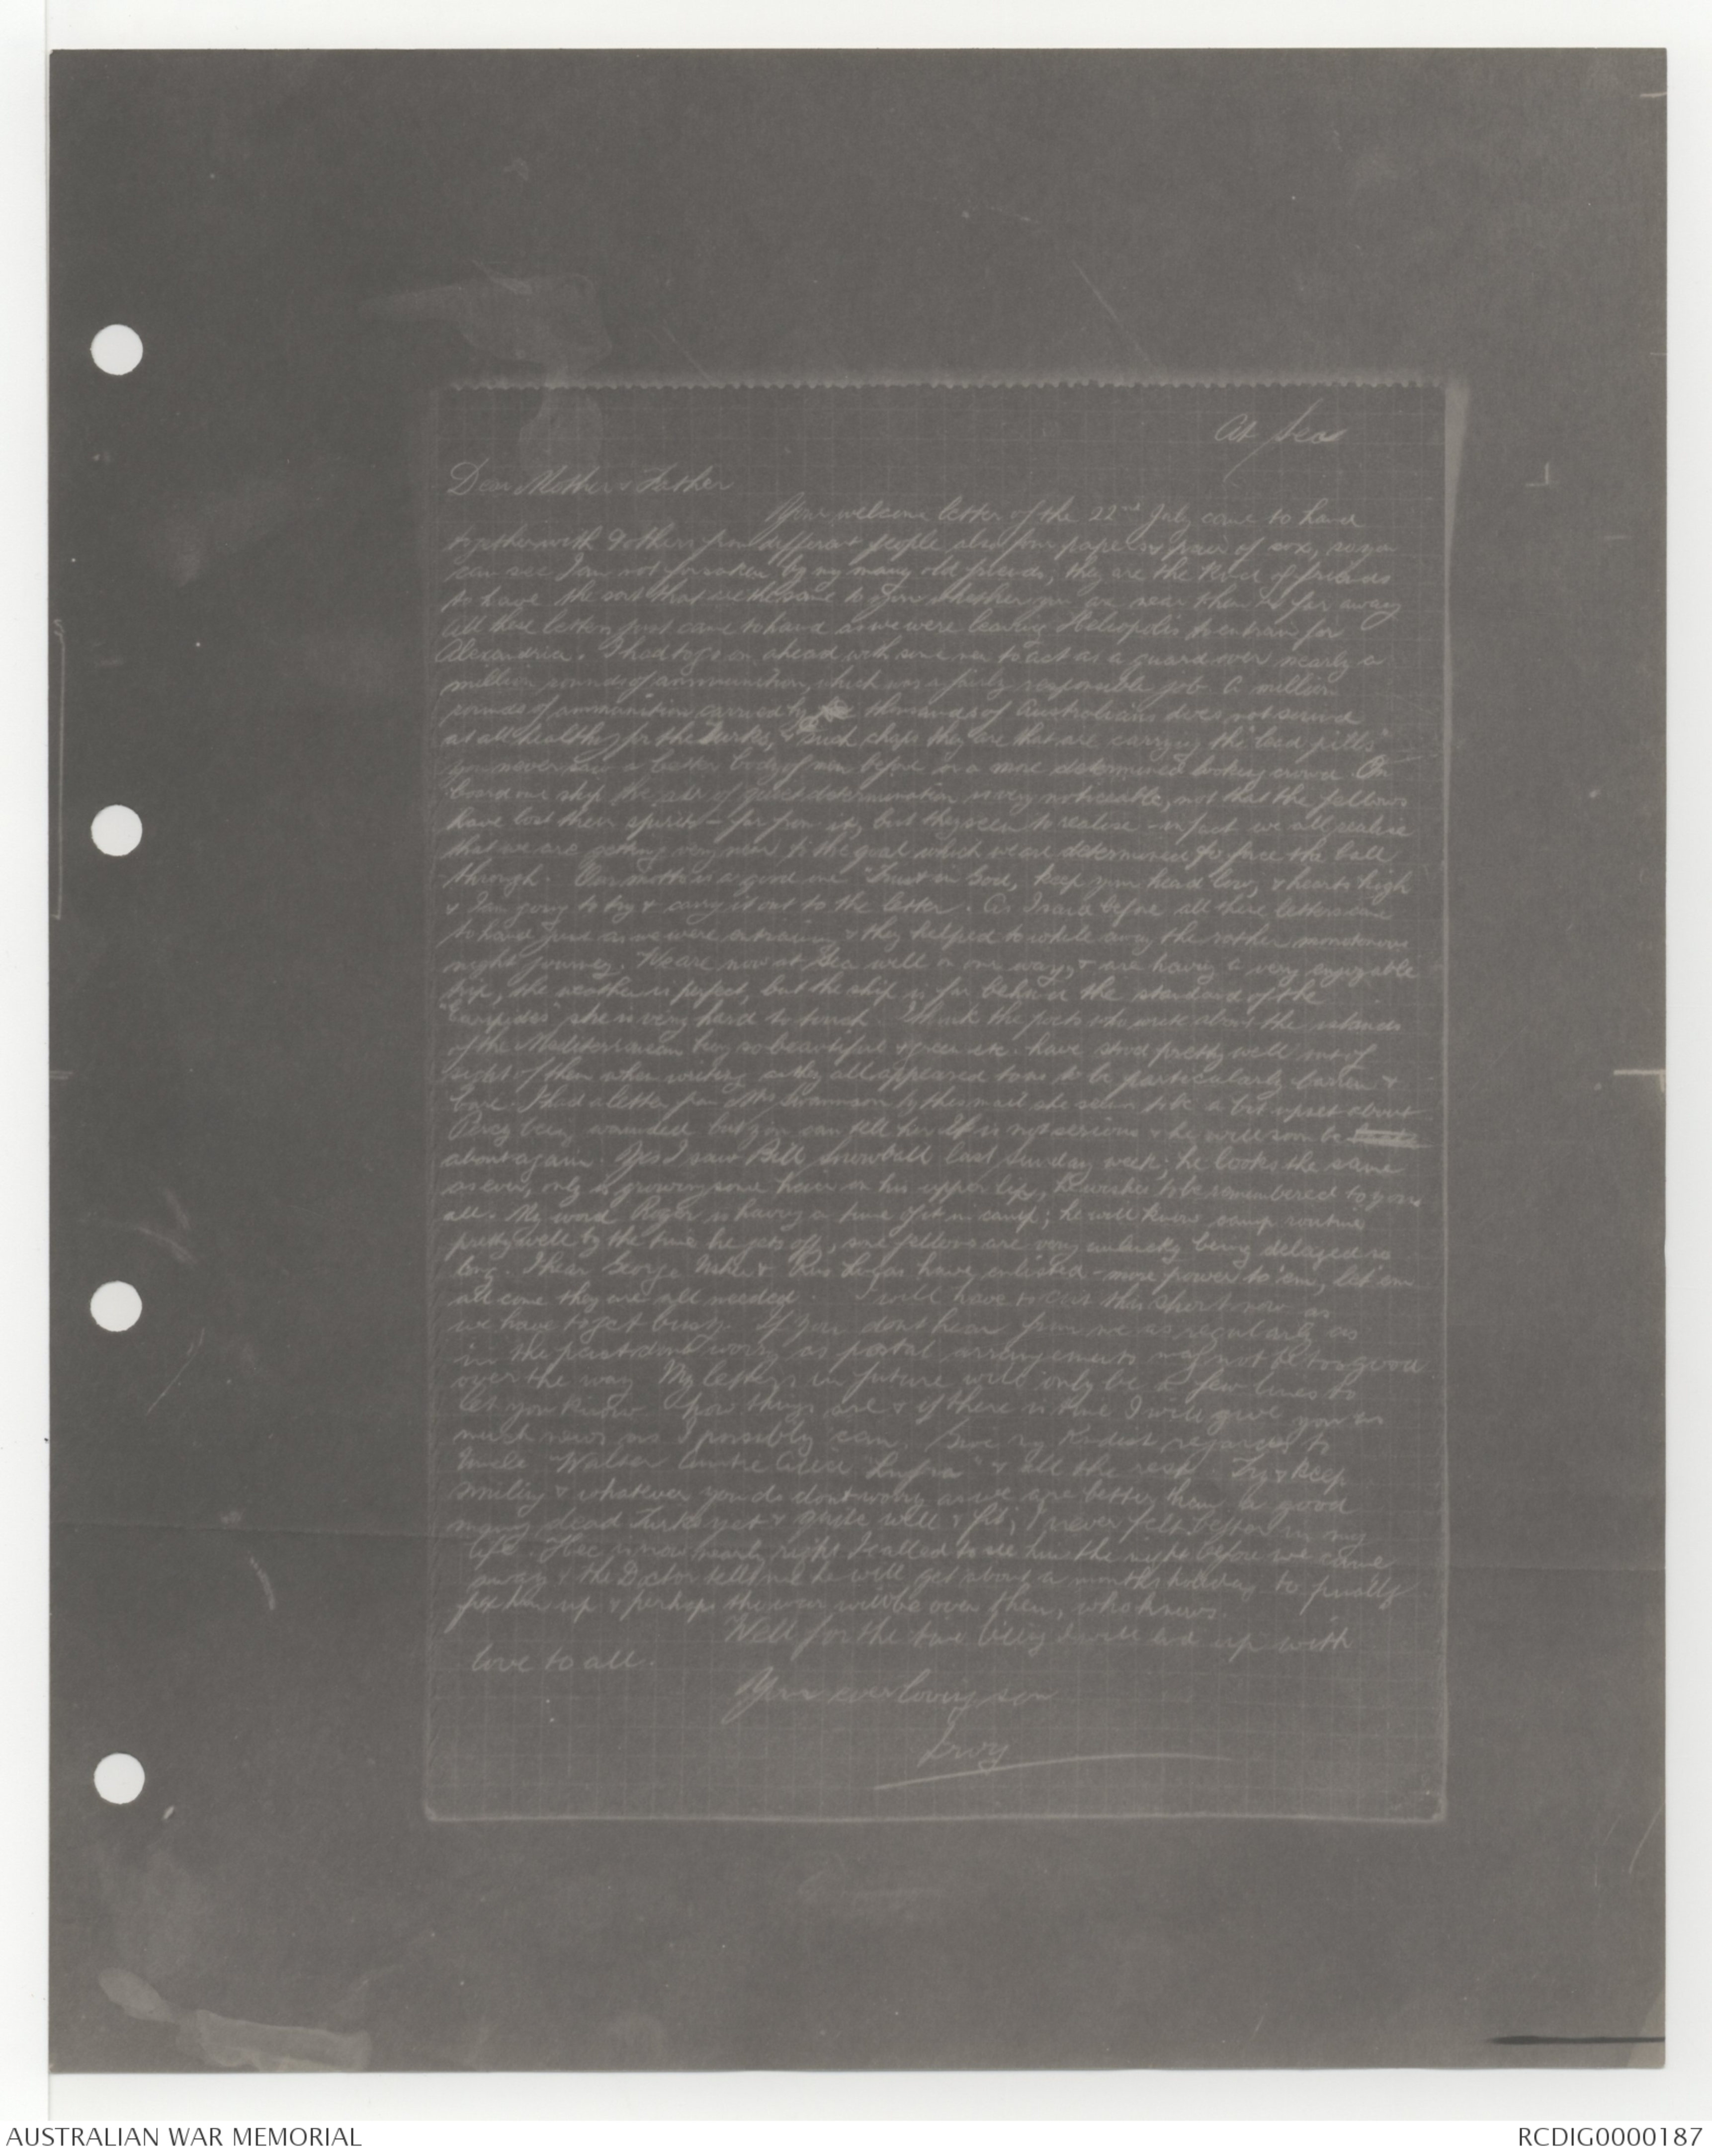 At Sea
Dear Mother & Father
Your welcome letter of the 22nd July came to hand
together with 9 others from different people also four papers & pair of sox, so you
can see I am not forsaken by my many old friends, they are the kind of friends
to have the sort that are the same to you whether you are near them or far away
All these letters just came to hand as we were leaving Heliopolis to entrain for
Alexandria. I had to go on ahead with some men to act as a guard over nearly a
million rounds of ammunition, which was a fairly responsible job. A million
rounds of ammunition carried by thousands of Australians does not sound
at all healthy for the Turks, & such chaps they are that are carrying the "lead pills"
you never saw a better body of men before or a more determined looking crowd. On
board our ship the air of quiet determination is very noticeable, not that the fellows
have lost their spirits - far from it, but they seem to realise - in fact we all realise
that we are getting very near to the goal which we are determined to force the ball
through. Our motto is a good one "Trust in God, keep your head low, & hearts high
& I am going to try & carry it out to the letter. As I said before all these letters came
to hand just as we were entraining & they helped to while away the rather monotonous
night journey. We are now at Sea well on our way, & are having a very enjoyable
trip, the weather is perfect, but the ship is far behind the standard of the
"Euripides" she is very hard to touch. I think the poets who write about the islands
of the Mediterranean being so beautiful & green etc. have stood pretty well out of
sight of them when writing as they all appeared to me to be particularly barren &
bare. I had a letter from Mrs Swannson by this mail she seems to be a bit upset about
Percy being wounded but you can tell her it is not serious & he will soon be
about again. Yes I saw Bill Snowball last Sunday week; he looks the same
as ever, only is growing some hair on his upper lip, he wishes to be remembered to you
all. My word Roger is having a time of it in camp; he will know camp routine
pretty well by the time he gets off, some fellows are very unlucky being delayed so
long. I hear George & have enlisted - more power to 'em, let 'em
all come they are all needed. I will have to cut this short now as
we have to get busy. If you dont hear from me as regularly as
in the past dont worry as postal arrangements may not be too good
over the way. My letters in future will only be a few lines to
let you know how things are & if there is time I will give you as
much news as I possibly can. Give my kindest regards to
Uncle Walter Auntie Alice & all the rest. Try & keep
smiling & whatever you do dont worry as we are better than a good
many dead Turks yet & quite well & fit; I never felt better in my
life. Hec is now nearly right I called to see him the night before we came
away & the Doctor tells me he will get about a months holiday to finally
fix him up & perhaps the war will be over then, who knows.
Well for the time being I will end up with
love to all.
Your ever loving son
Irvy
AUSTRALIAN WAR MEMORIAL
RCDIG0000187